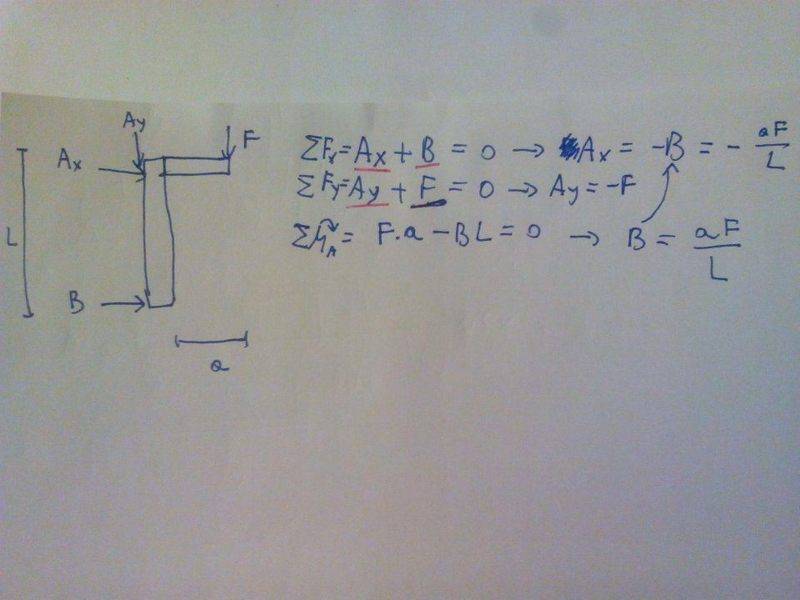 Ay
F
Ax
L
B
a
ΣFx = Ax + B = 0 → Ax = -B = - aF/L
ΣFy = Ay + F = 0 → Ay = -F
ΣM_A = F·a - BL = 0 → B = aF/L